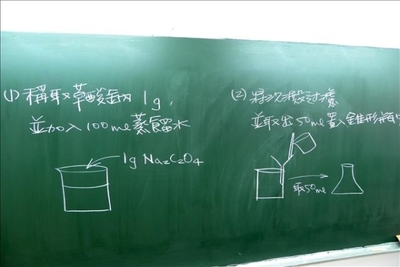 (1) 稱取草酸鈉 1g,
並加入100ml蒸餾水
1g Na2C2O4
(2) 將沉澱过濾
並取出50ml置入錐形瓶中
取50ml